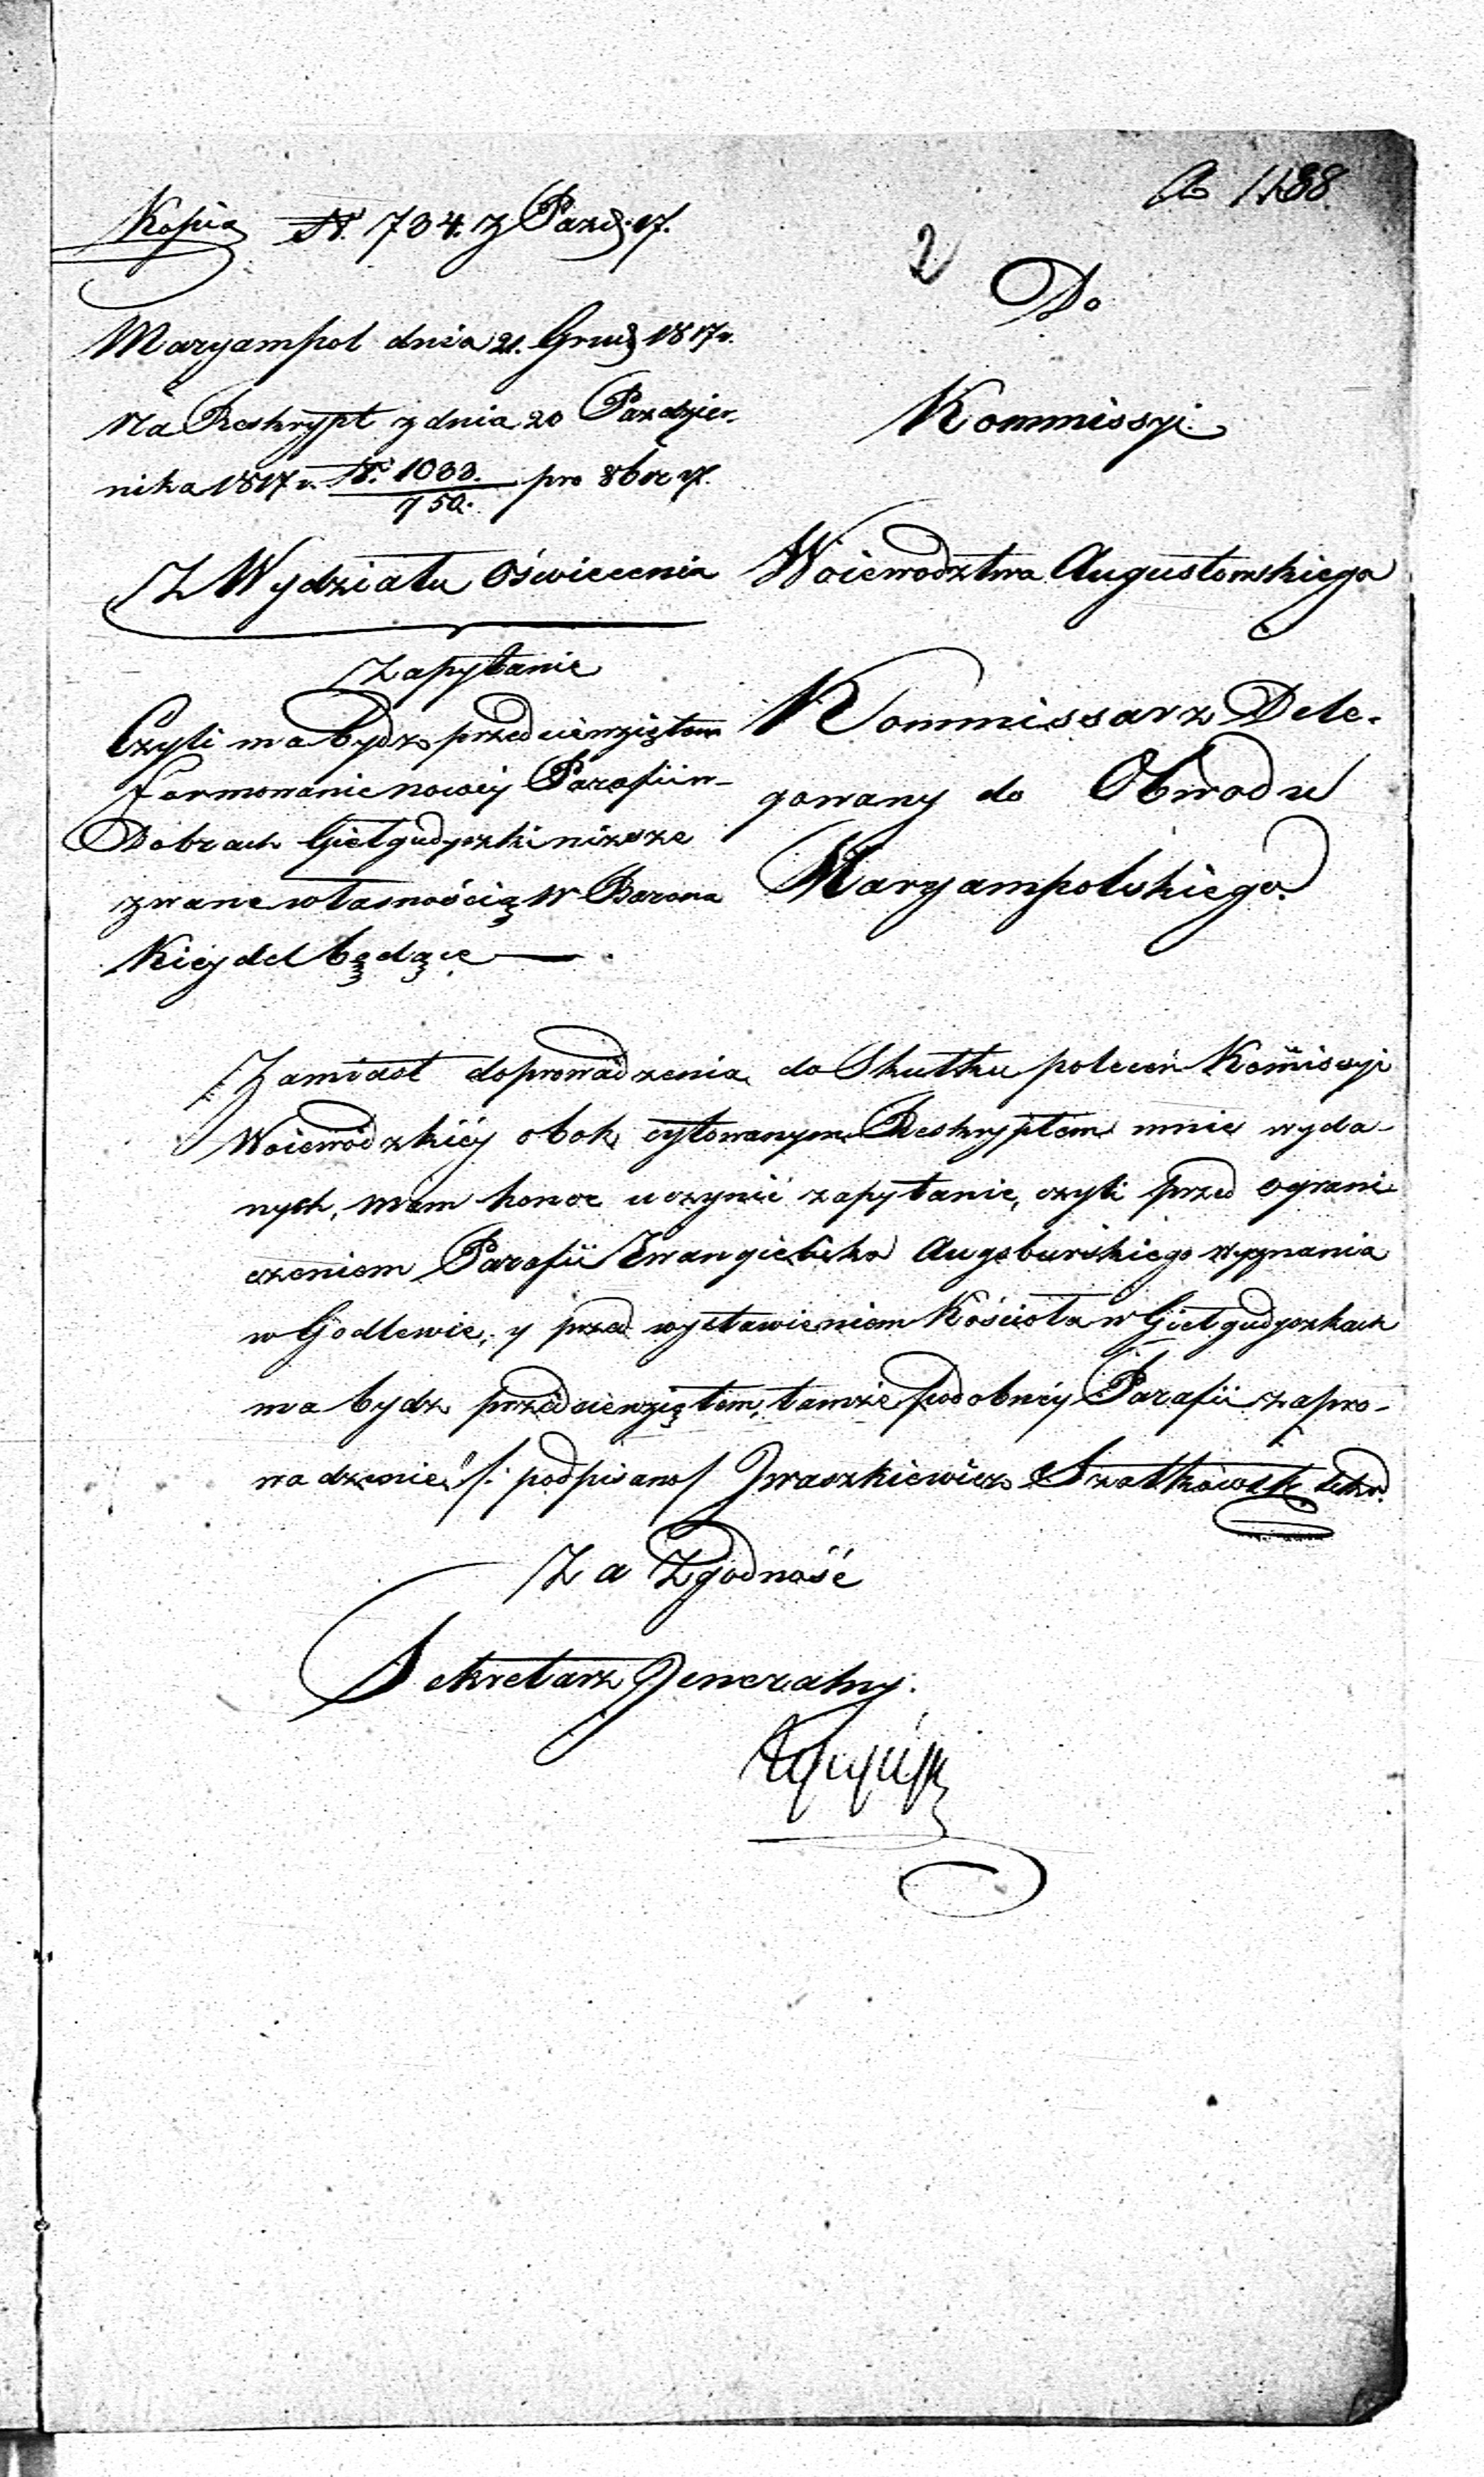 1488
Kopia N. 734. z Pazd: 17.
2
Maryampol dnia 21. Grud 1817 r.
Na Reskrypt z dnia 20 Pazdzier-
nika 1817 r. N. 1033.
750.
pro 8br 17.
Z Wydziału Oświecenia
Zapytanie
Czyli ma bydz przedsiewziętem
formowanie nowéy Parafii w
Dobrach Giełgudyszki niższe
zwane własnością W Barona
Kieydel będące
Do
Kommissyi
Woiewodztwa Augustowskiego
Kommissarz Dele-
gowany do Obwodu
Maryampolskiego.
Zamiast doprowadzenia do Skutku poleceń Kommissyi
Woiewódzkiéy obok cytowanym Reskryptem mnie wyda-
nych, mam honor uczynić zapytanie, czyli przed ograni
czeniem Parafii Ewangielicko Augsburskiego wyznania
w Godlewie, y przed wystawieniem Kościoła w Giełgudyszkach
ma bydz przedsiewziętem, tamże podobnéy Parafii zapro-
wadzenie /: podpisano/ Iwaszkiewicz Szatkowsk. Sekr.
Za Zgodność
Sekretarz Jeneralny.